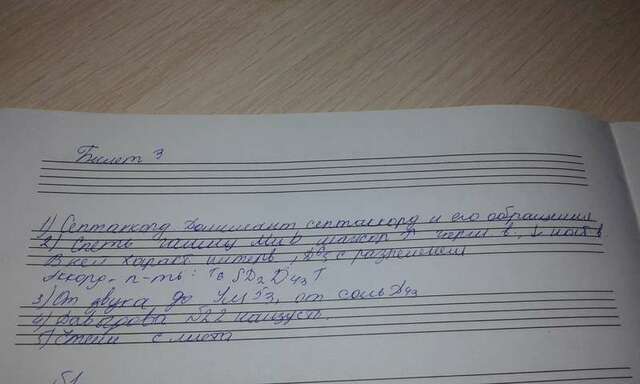 Билет 3
1) Септаккорд Доминант септаккорд и его обращения
2) Спеть гамму Ми мажор ↑ гарм в, ↓ нат в
В ней характ интерв, D₇ с разрешением
Аккорд. п-ть: T₆ S D₂ D₄₃ T
3) От звука до Ум 5₃, от соль D₄₃
4) Давыдова №22 наизуст.
5) Чтение с листа